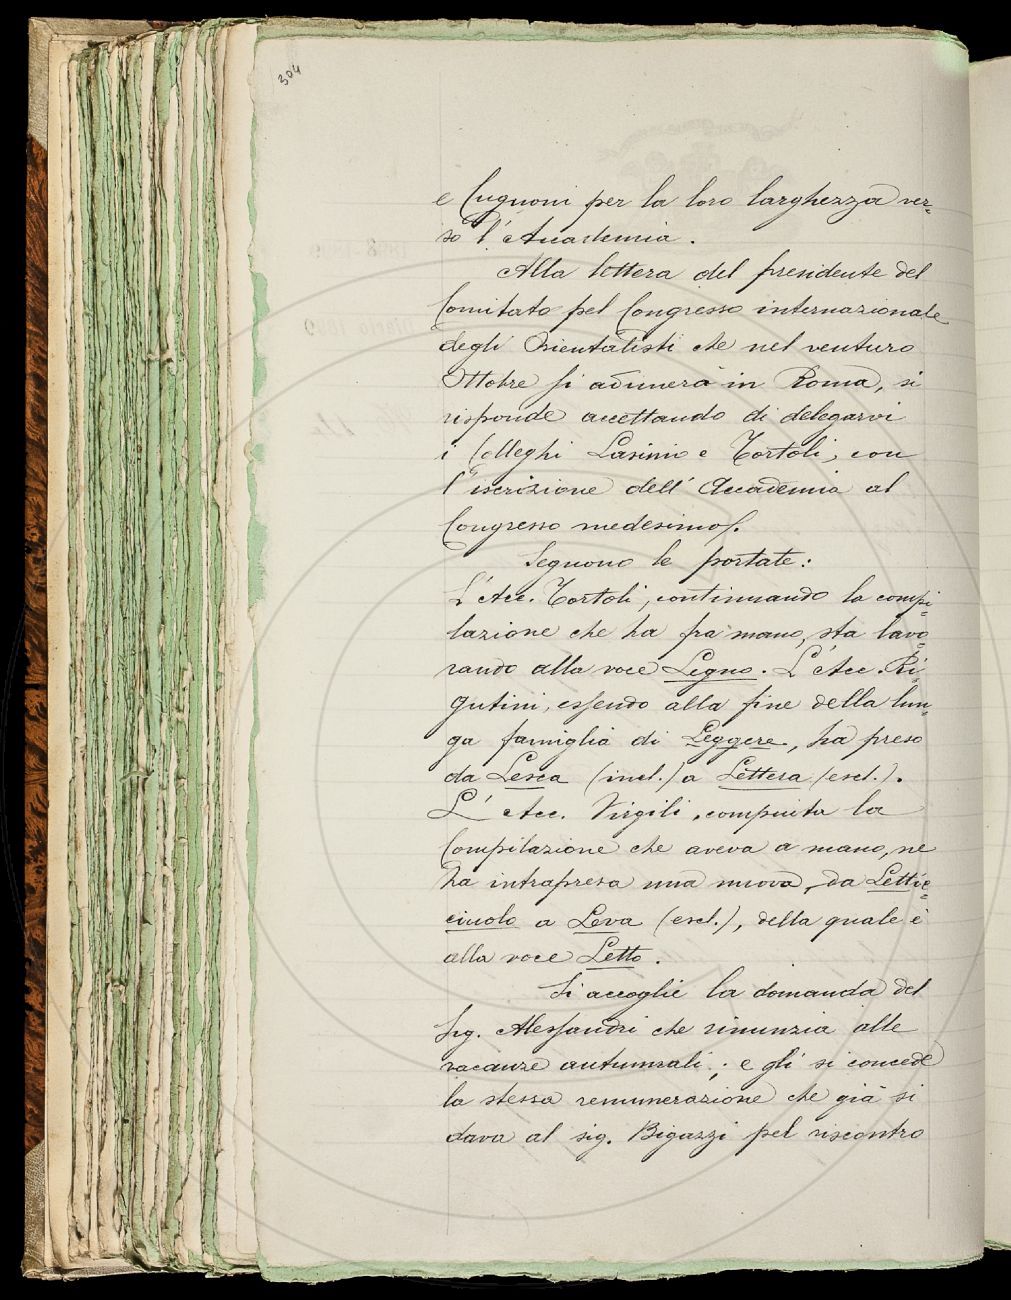 304
e Cugnoni per la loro larghezza ver=
so l'Accademia.
Alla lettera del presidente del
Comitato pel Congresso internazionale
degli Orientalisti che nel venturo
Ottobre si adunerà in Roma, si
risponde accettando di delegarvi
i Colleghi Lasinio e Tortoli, con
l'iscrizione dell'Accademia al
Congresso medesimo.
Seguono le portate:
L'Acc. Tortoli, continuando la compi=
lazione che ha fra mano, sta lavo=
rando alla voce Legno. L'Acc. Ri=
gutini, essendo alla fine della lun=
ga famiglia di Leggere, ha preso
da Lesca (incl.) a Lettera (escl.).
L'Acc. Virgili, compiuta la
Compilazione che aveva a mano, ne
ha intrapresa una nuova, da Lettic=
ciuolo a Leva (escl.), della quale è
alla voce Letto.
Si accoglie la domanda del
Sig. Alessandri che rinunzia alle
vacanze autunnali; e gli si concede
la stessa remunerazione che già si
dava al sig. Bigazzi pel riscontro